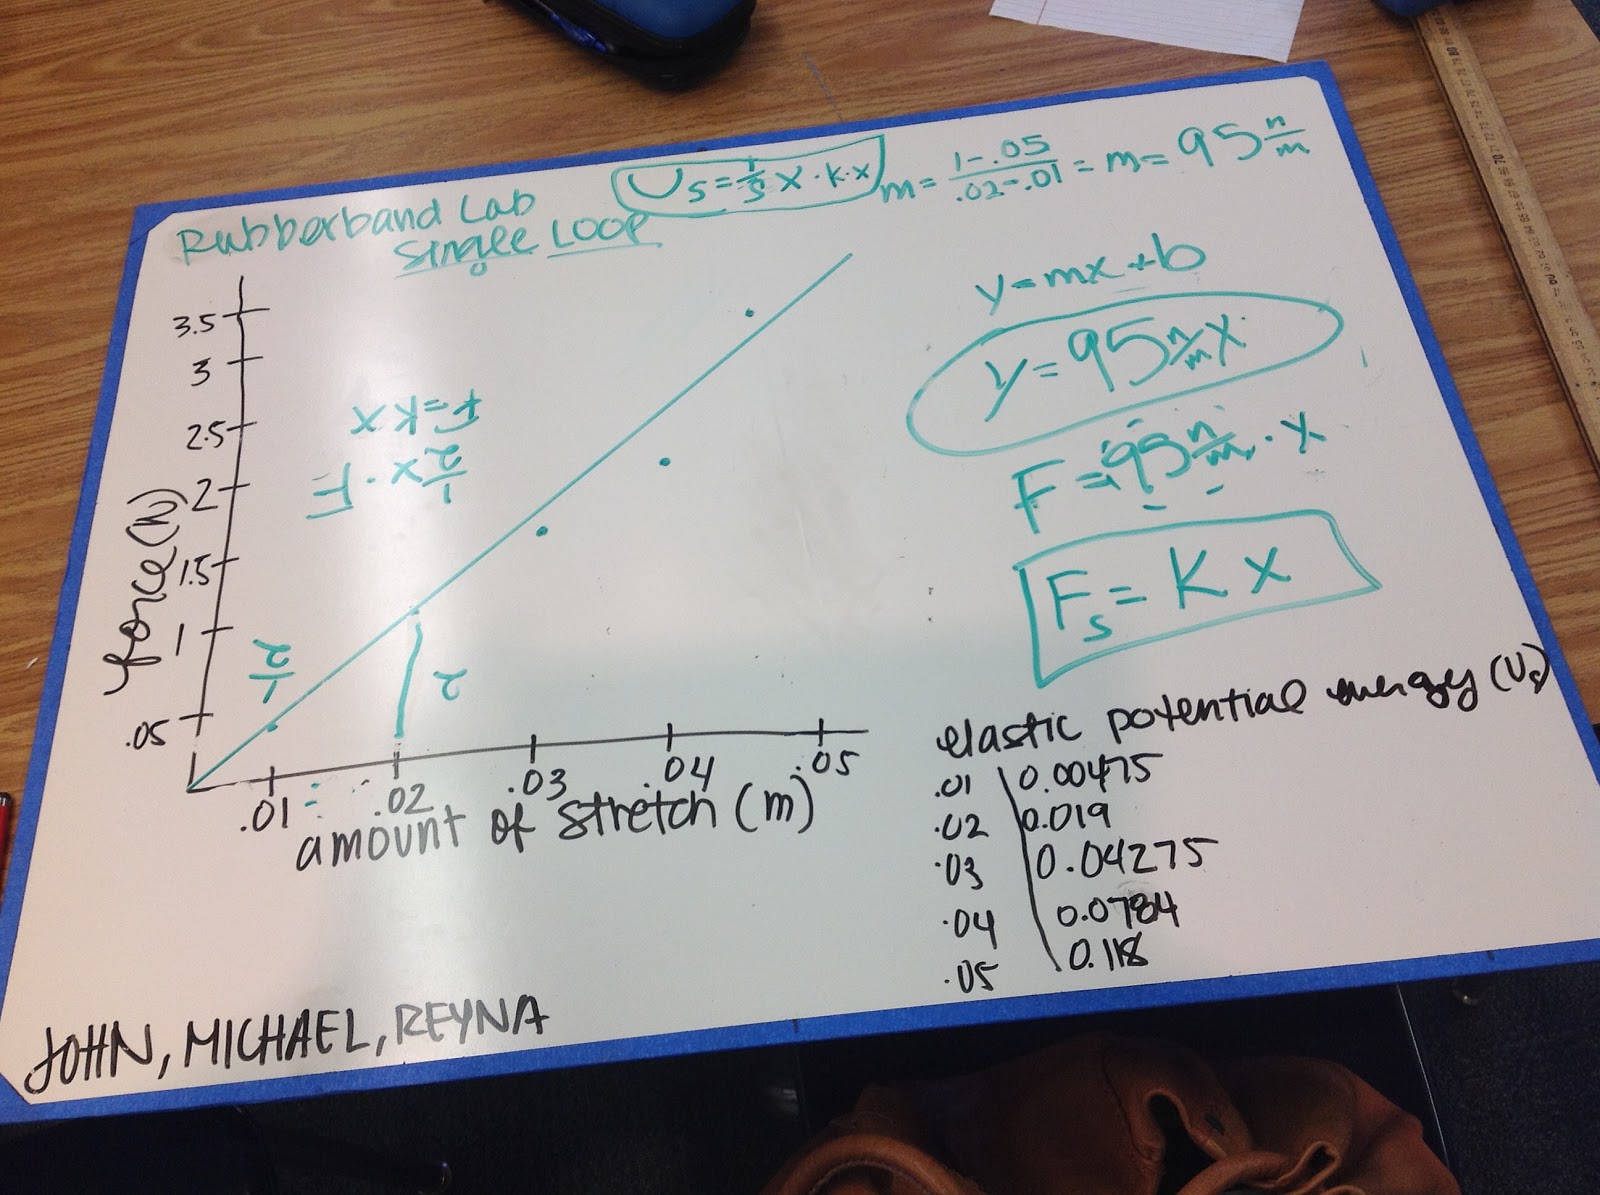 Rubberband Lab
Single Loop
U_s = 1/s x · k · x
m = (1 - .05)/(.02 - .01) = m = 95 n/m
y = mx + b
y = 95 n/m x
F = 95 n/m · x
F_s = K x
3.5
3
2.5
2
1.5
1
.05
force (N)
F = kx
1/2 x · F
1/2
2
.01 .02 .03 .04 .05
amount of stretch (m)
elastic potential energy (U_s)
.01 0.00475
.02 0.019
.03 0.04275
.04 0.0784
.05 0.118
JOHN, MICHAEL, REYNA